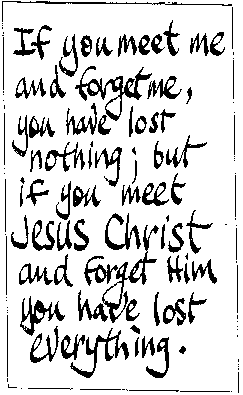 If you meet me
and forget me,
you have lost
nothing; but
if you meet
Jesus Christ
and forget Him
you have lost
everything.